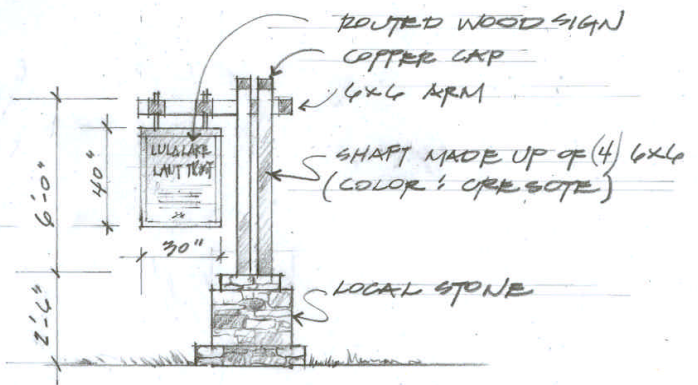 ROUTED WOOD SIGN
COPPER CAP
6x6 ARM
SHAFT MADE UP OF (4) 6x6
(COLOR: CRESOTE)
LOCAL STONE
LULA LAKE
LAUT TRUST
6'-0"
40"
30"
2'-6"